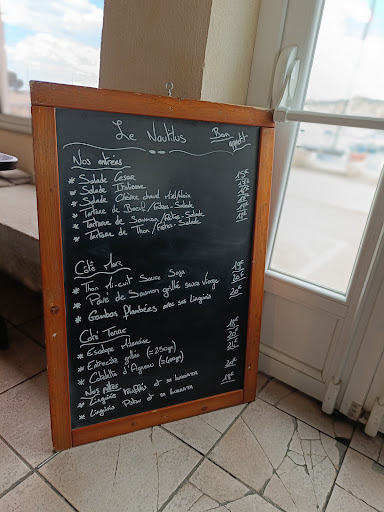 Le Nautilus
Bon appétit
Nos entrées
* Salade César 15€
* Salade Italienne
* Salade Chèvre chaud Miel/Noix
* Tartare de Boeuf/Frites-Salade
* Tartare de Saumon/Frites-Salade
* Tartare de Thon/Frites-Salade
Côté Mer
* Thon Mi-cuit - Sauce Soja 19€
* Pavé de Saumon grillé sauce Vierge 20€
* Gambas flambées avec ses linguinis 20€
Côté Terre
* Escalope Milanaise 18€
* Entrecôte grillée (≈250gr) 20€
* Côtelette d'Agneau
Nos pâtes
* Linguinis Truffes et sa burrata 20€
* Linguinis Pistou et sa burrata 18€